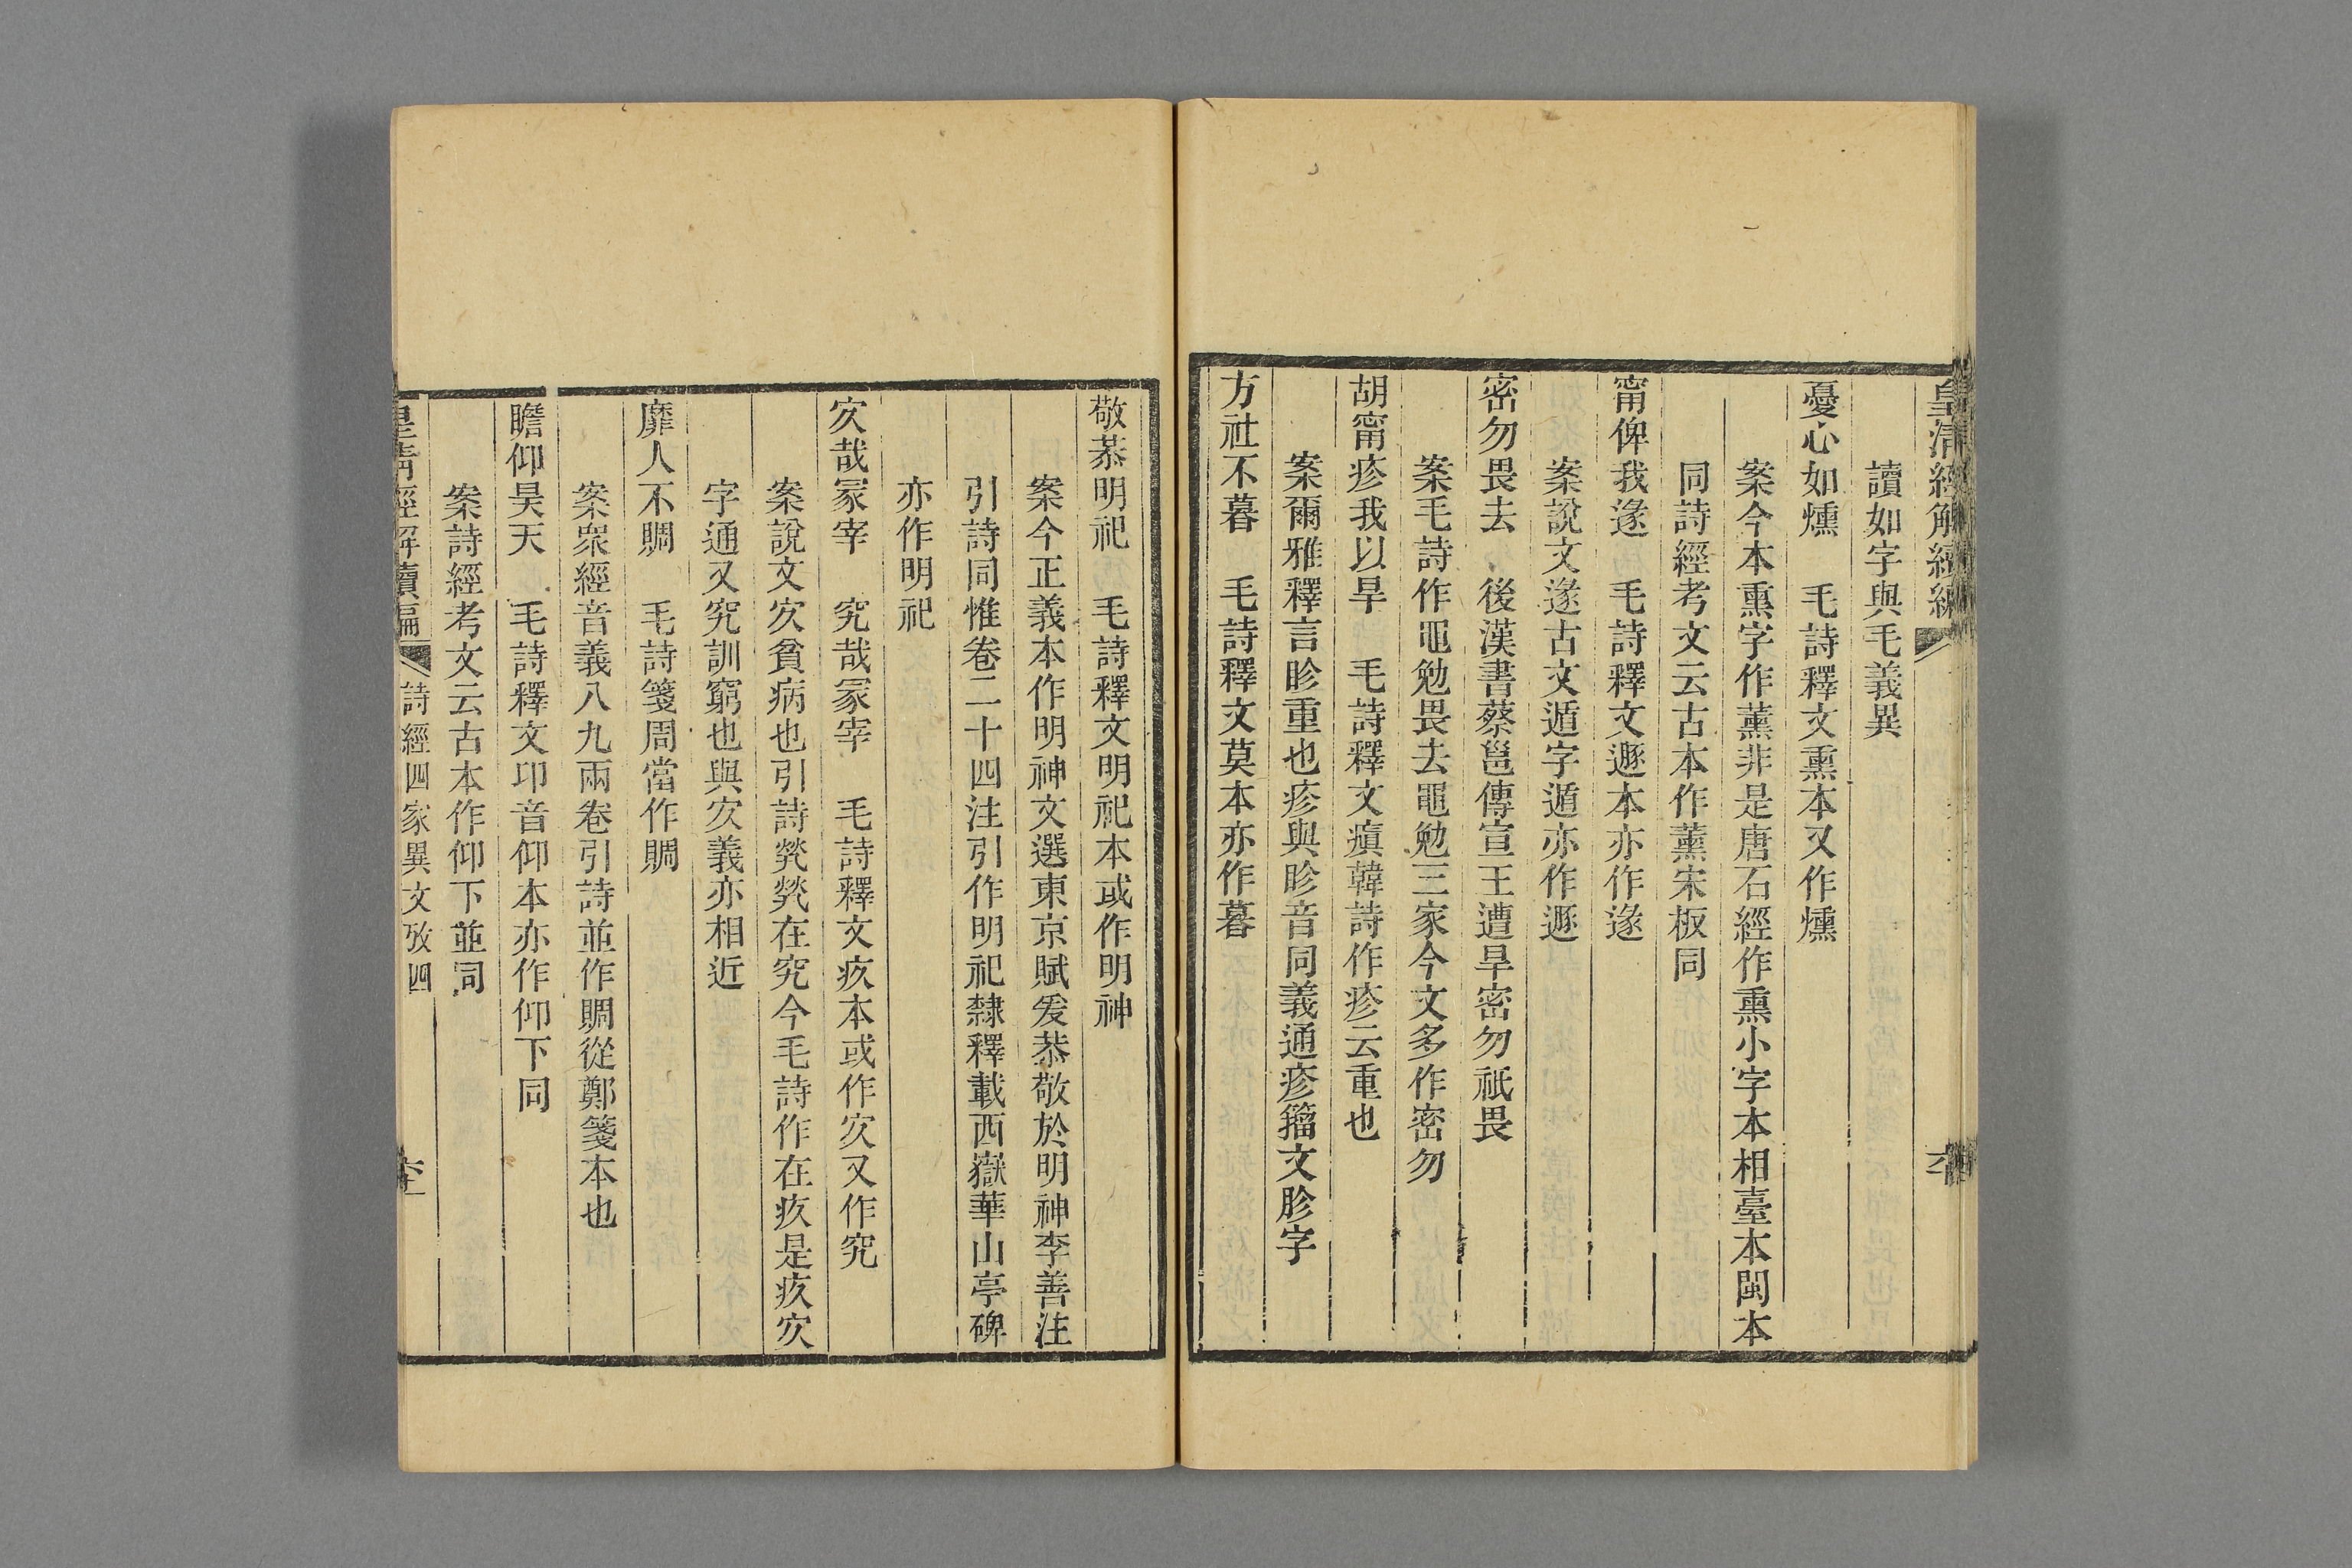 皇清經解續編
讀如字與毛義異
憂心如燻　毛詩釋文熏本又作燻
案今本熏字作薰非是唐石經作熏小字本相臺本閩本
同詩經考文云古本作薰宋板同
甯俾我遂　毛詩釋文遯本亦作遂
案說文遂古文遁字遁亦作遯
密勿畏去　後漢書蔡邕傳宣王遭旱密勿祇畏
案毛詩作黽勉畏去黽勉三家今文多作密勿
胡甯疹我以旱　毛詩釋文瘨韓詩作疹云重也
案爾雅釋言眕重也疹與眕音同義通疹籀文胗字
方社不暮　毛詩釋文莫本亦作暮
敬恭明祀　毛詩釋文明祀本或作明神
案今正義本作明神文選東京賦爰恭敬於明神李善注
引詩同惟卷二十四注引作明祀隸釋載西嶽華山亭碑
亦作明祀
㝌哉冢宰　究哉冢宰　毛詩釋文疚本或作㝌又作究
案說文㝌貧病也引詩煢煢在㝌今毛詩作在疚是疚㝌
字通又究訓窮也與㝌義亦相近
靡人不賙　毛詩箋周當作賙
案眾經音義八九兩卷引詩並作賙從鄭箋本也
瞻仰昊天　毛詩釋文卬音仰本亦作仰下同
案詩經考文云古本作仰下並同
皇清經解續編　詩經四家異文攷四